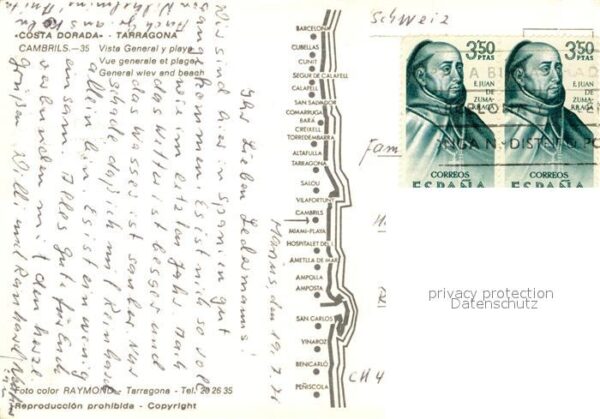 Schweiz
«COSTA DORADA» - TARRAGONA
CAMBRILS.—35 Vista General y playa
Vue generale et plage
General wiev and beach
BARCELONA
CUBELLAS
CUNIT
SEGUR DE CALAFELL
CALAFELL
SAN SALVADOR
COMARRUGA
BARÁ
CREIXELL
TORREDEMBARRA
ALTAFULLA
TARRAGONA
SALOU
VILAFORTUNY
CAMBRILS
MIAMI-PLAYA
HOSPITALET DEL I.
AMETLLA DE MAR
AMPOLLA
AMPOSTA
SAN CARLOS
VINAROZ
BENICARLÓ
PEÑISCOLA
3,50 PTAS
F. JUAN DE ZUMARRAGA
CORREOS
ESPAÑA
3,50 PTAS
F. JUAN DE ZUMARRAGA
CORREOS
ESPAÑA
Fam
CH 4
privacy protection
Datenschutz
Ihr Lieben Ledermanns!
Wir sind hier in Spanien gut
angekommen. Es ist nicht so voll
wie im letzten Jahr. Auch
das Wetter ist besser und
das Wasser ist sauber. Nur
schade, daß ich mit Reinhard
allein bin. Es ist ein wenig
einsam. Alles Gute für Euch
verbunden mit den herzl.
Grüßen
Foto color RAYMOND - Tarragona - Tel. 20 26 35
Reproducción prohibida - Copyright